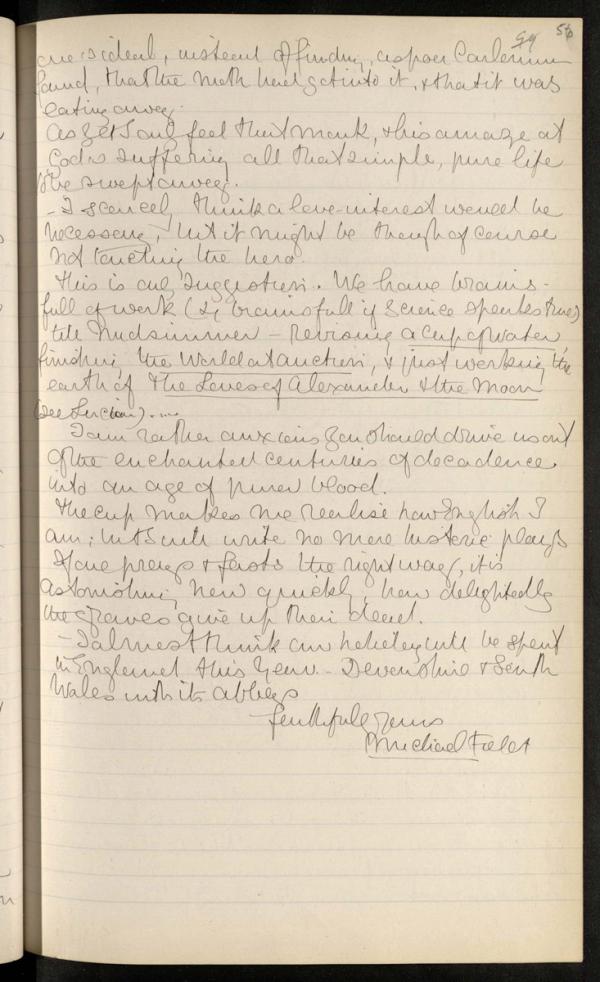 59 56
one's ideal, instead of finding, as poor
found, that the moth had got into it, & that it was
eating away.
As yet I only feel that monk, & his amaze at
God's suffering all that simple, pure life
to be swept away.
- I scarcely think a love-interest would be
necessary, but it might be though of course
not touching the hero.
This is only suggestion. We have brains-
full of work (2 brainsfull if Science speaks true)
till Midsummer - revising a Cup of Water,
finishing the World at Auction, & just working the
earth of The Loves of Alexander & the Moon
(see Lucian). ...
I am rather anxious you should drive us out
of the enchanted centuries of decadence
into an age of purer blood.
The Cup makes me realise how English I
am; but I will write no more historic plays
If one prays & fasts the right way, it is
astonishing how quickly, how delightedly
the graves give up their dead.
- I almost think our holiday will be spent
in England this year - Devonshire & South
Wales with its abbeys
faithfully yours
Michael Field